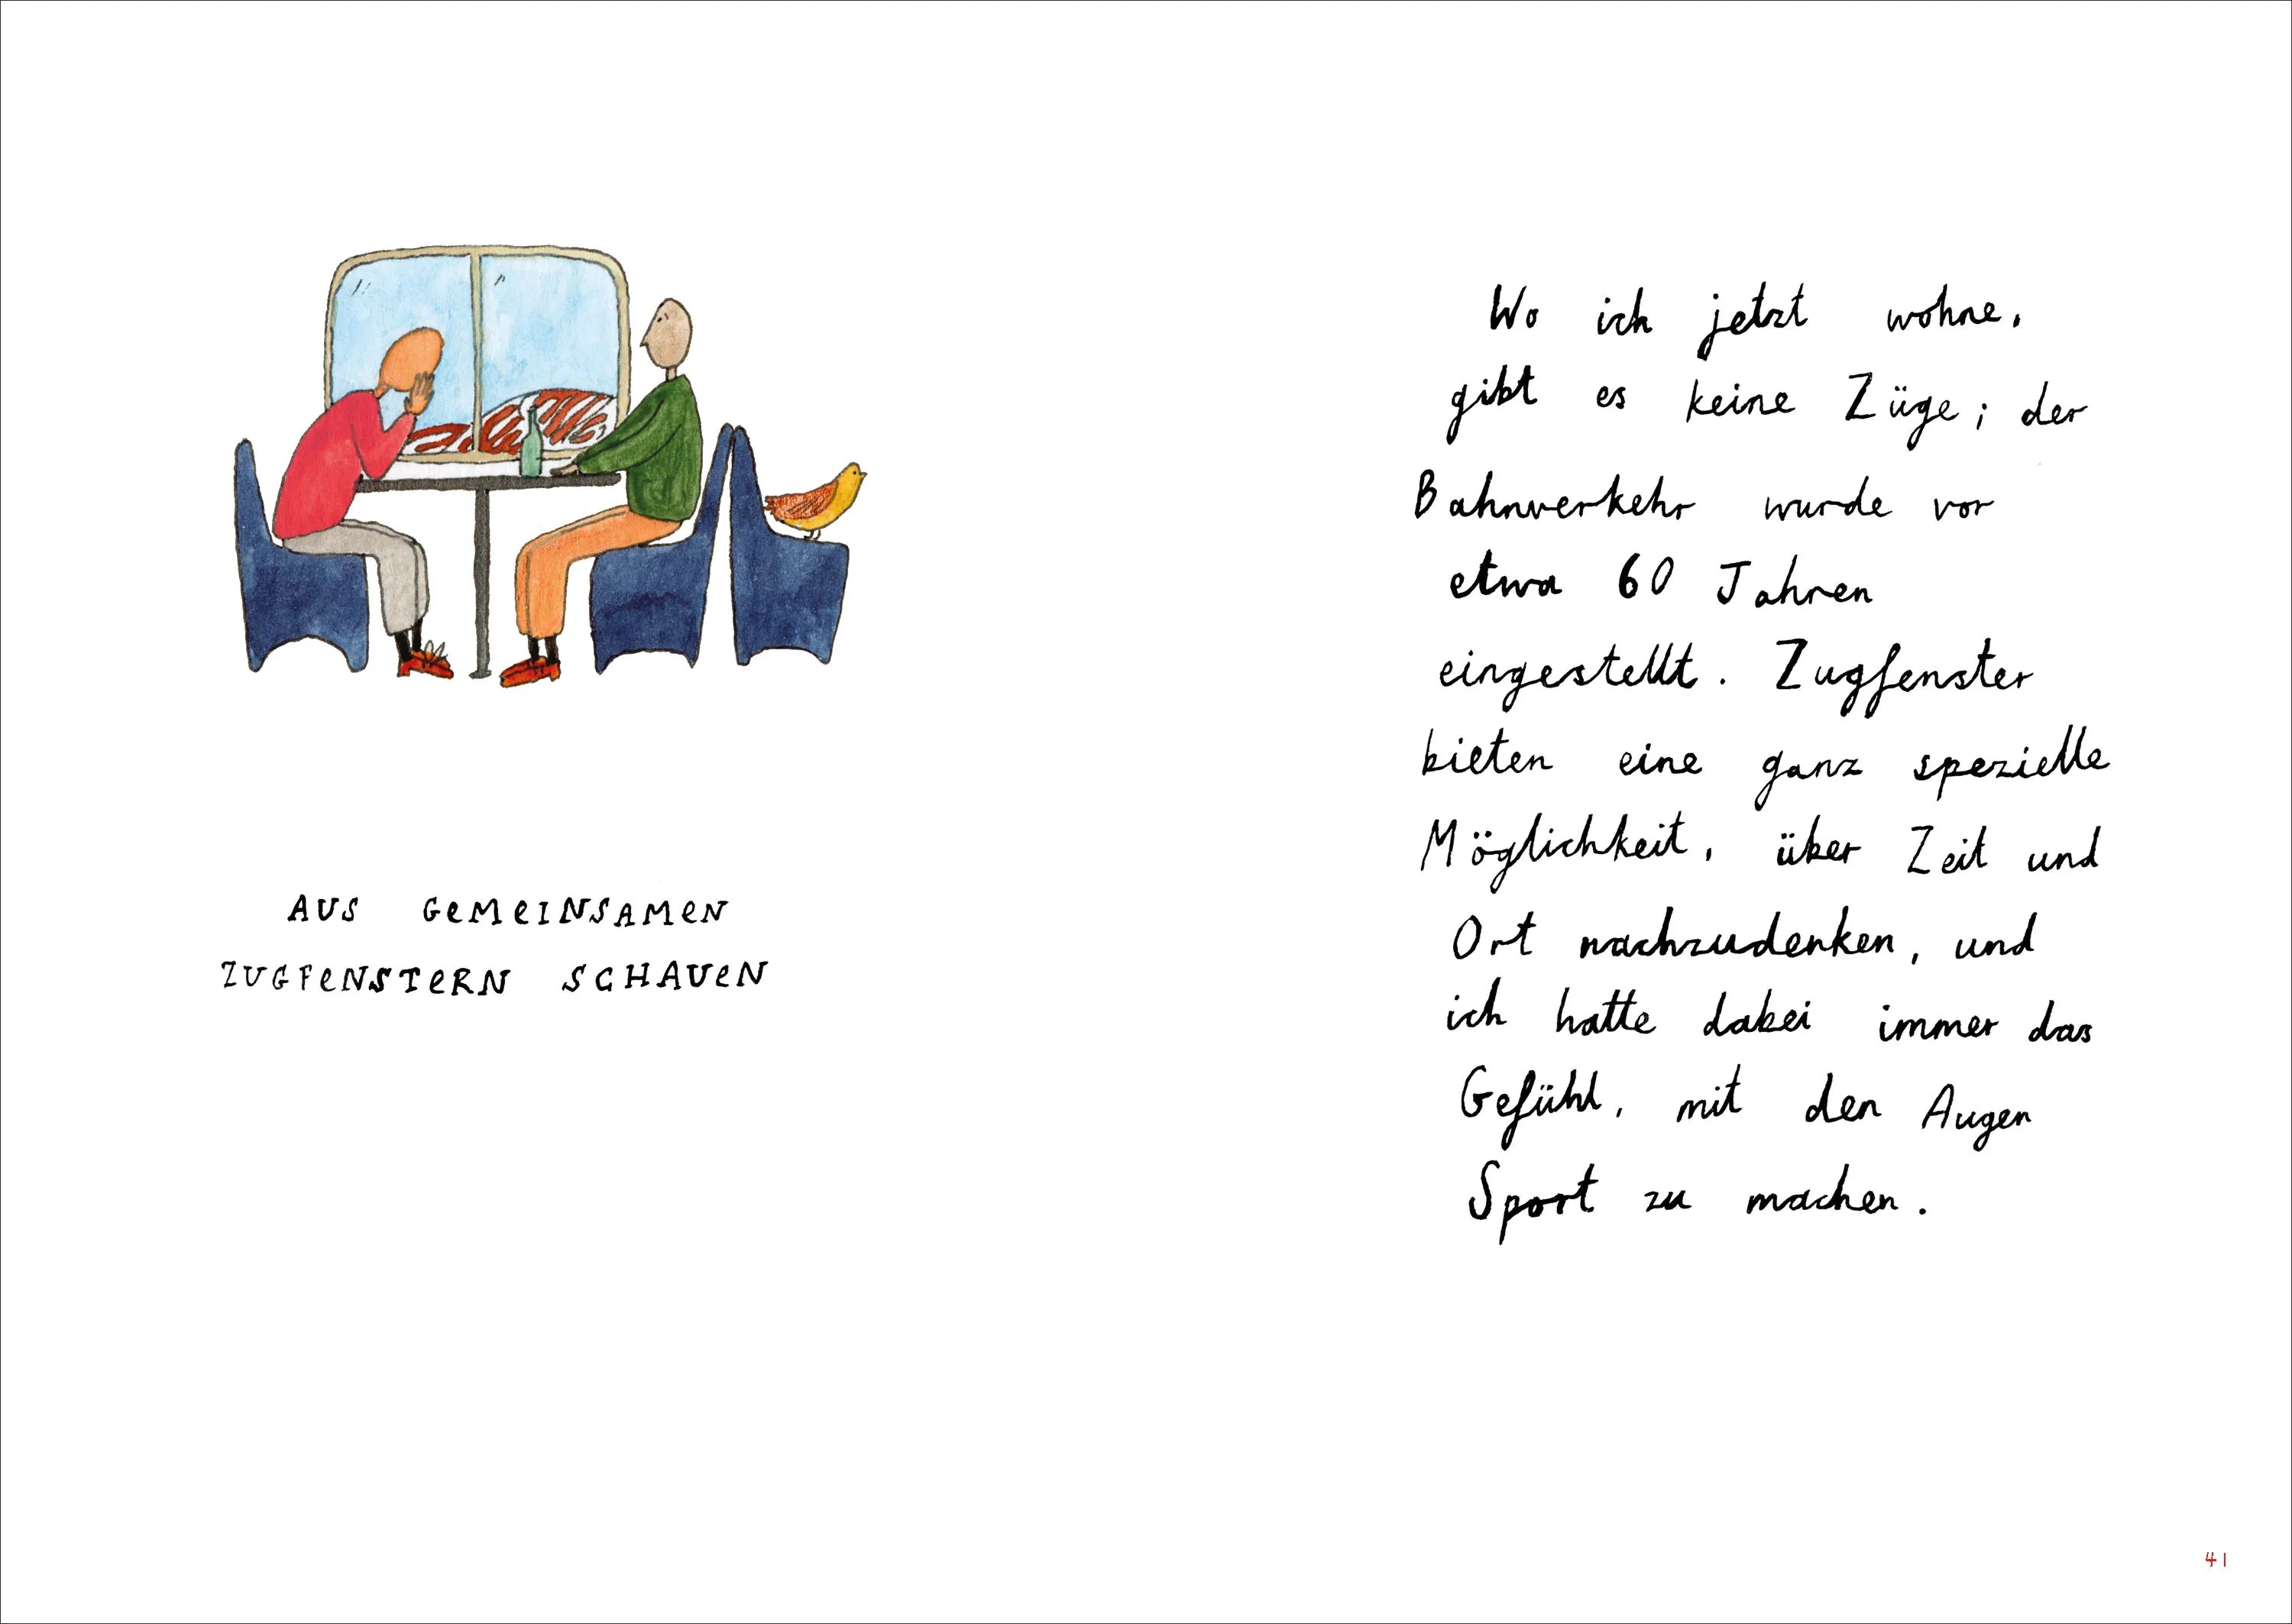 AUS GEMEINSAMEN
ZUGFENSTERN SCHAUEN
Wo ich jetzt wohne,
gibt es keine Züge; der
Bahnverkehr wurde vor
etwa 60 Jahren
eingestellt. Zugfenster
bieten eine ganz spezielle
Möglichkeit, über Zeit und
Ort nachzudenken, und
ich hatte dabei immer das
Gefühl, mit den Augen
Sport zu machen.
41